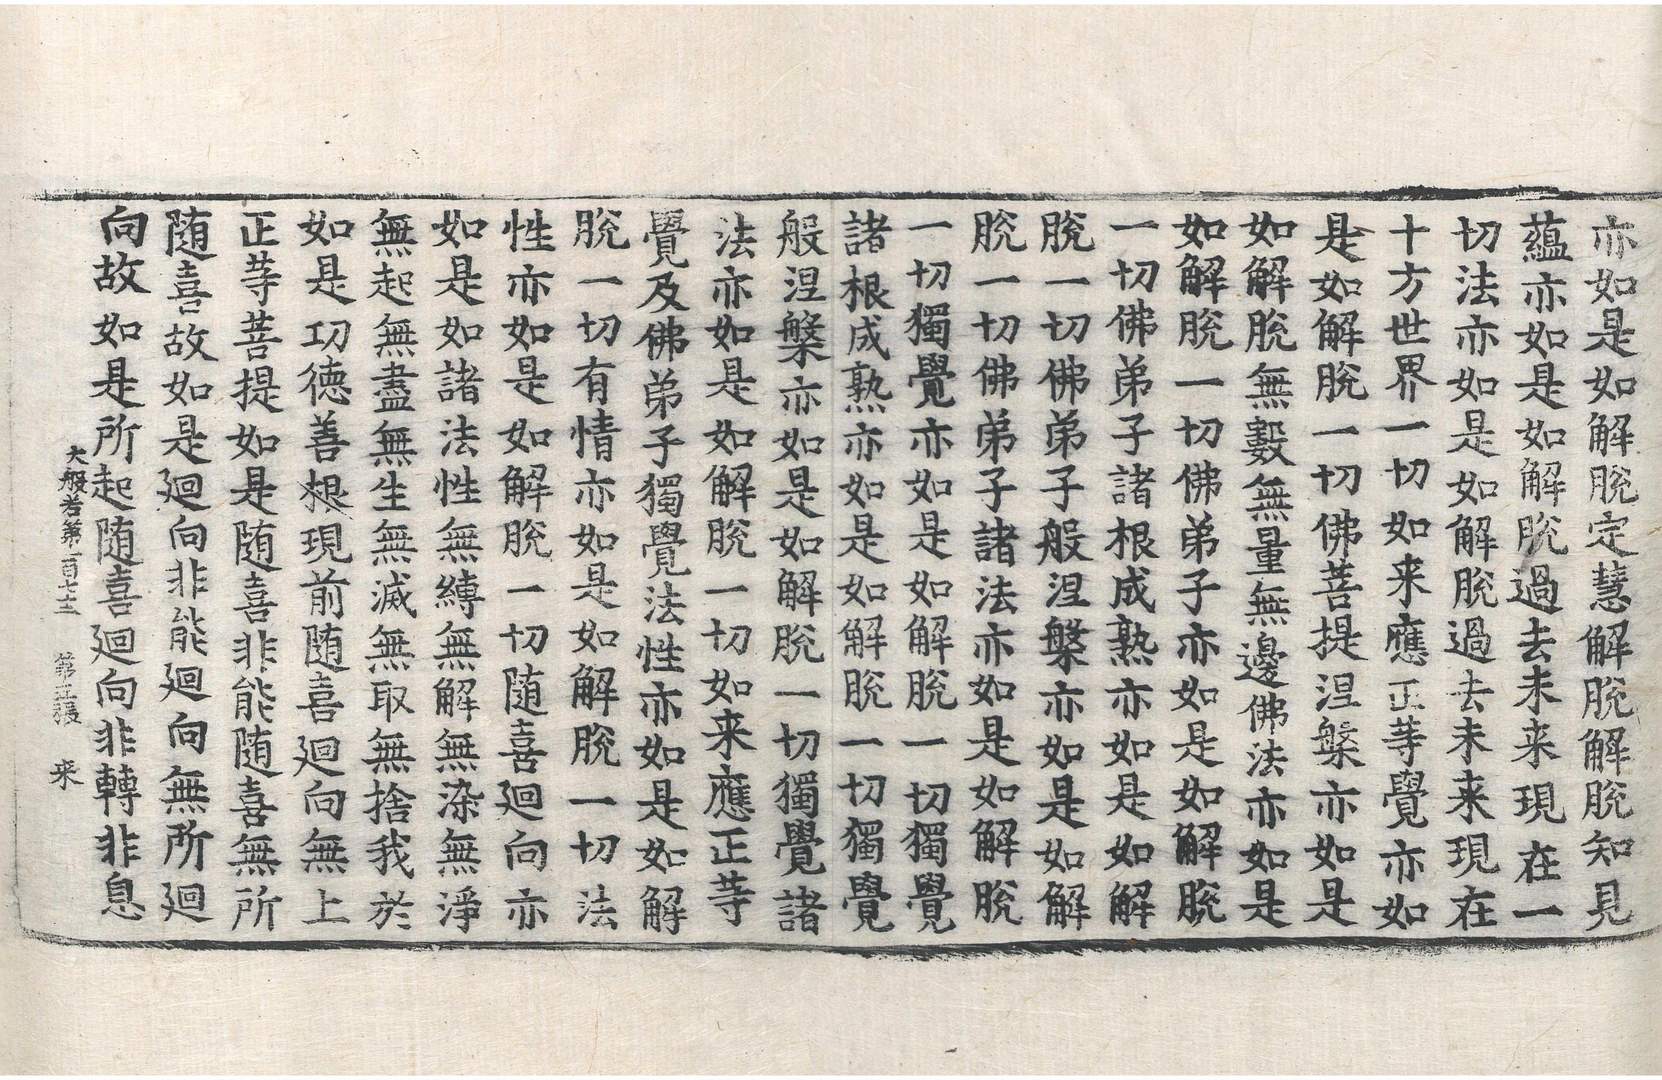 亦如是如解脫定慧解脫解脫知見
蘊亦如是如解脫過去未来現在一
切法亦如是如解脫過去未来現在
十方世界一切如来應正等覺亦如
是如解脫一切佛菩提涅槃亦如是
如解脫無數無量無邊佛法亦如是
如解脫一切佛弟子亦如是如解脫
一切佛弟子諸根成熟亦如是如解
脫一切佛弟子般涅槃亦如是如解
脫一切佛弟子諸法亦如是如解脫
一切獨覺亦如是如解脫一切獨覺
諸根成熟亦如是如解脫一切獨覺
般涅槃亦如是如解脫一切獨覺諸
法亦如是如解脫一切如来應正等
覺及佛弟子獨覺法性亦如是如解
脫一切有情亦如是如解脫一切法
性亦如是如解脫一切随喜廻向亦
如是如諸法性無縛無解無染無淨
無起無盡無生無滅無取無捨我於
如是功德善根現前随喜廻向無上
正等菩提如是随喜非能随喜無所
随喜故如是廻向非能廻向無所廻
向故如是所起随喜廻向非轉非息
大般若第一百七十二 第五張 来